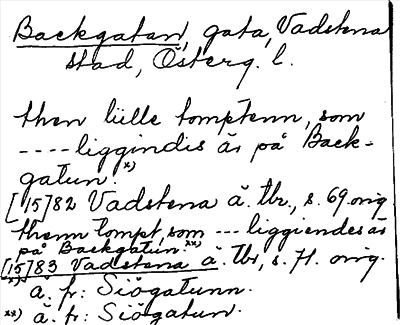 Backgatan, gata, Vadstena
stad, Österg. l.
then lülle tomptenn, som
---- liggindis äs på Back-
gatun. x)
[15]82 Vadstena ä. tbr., s. 69 orig.
thenn tompt, som --- liggiendes äs
på Backgatun. xx)
[15]83 Vadstena ä. tbr, s. 71. orig.
x) ä. fr: Siögatunn.
xx) ä. fr: Siögatun.